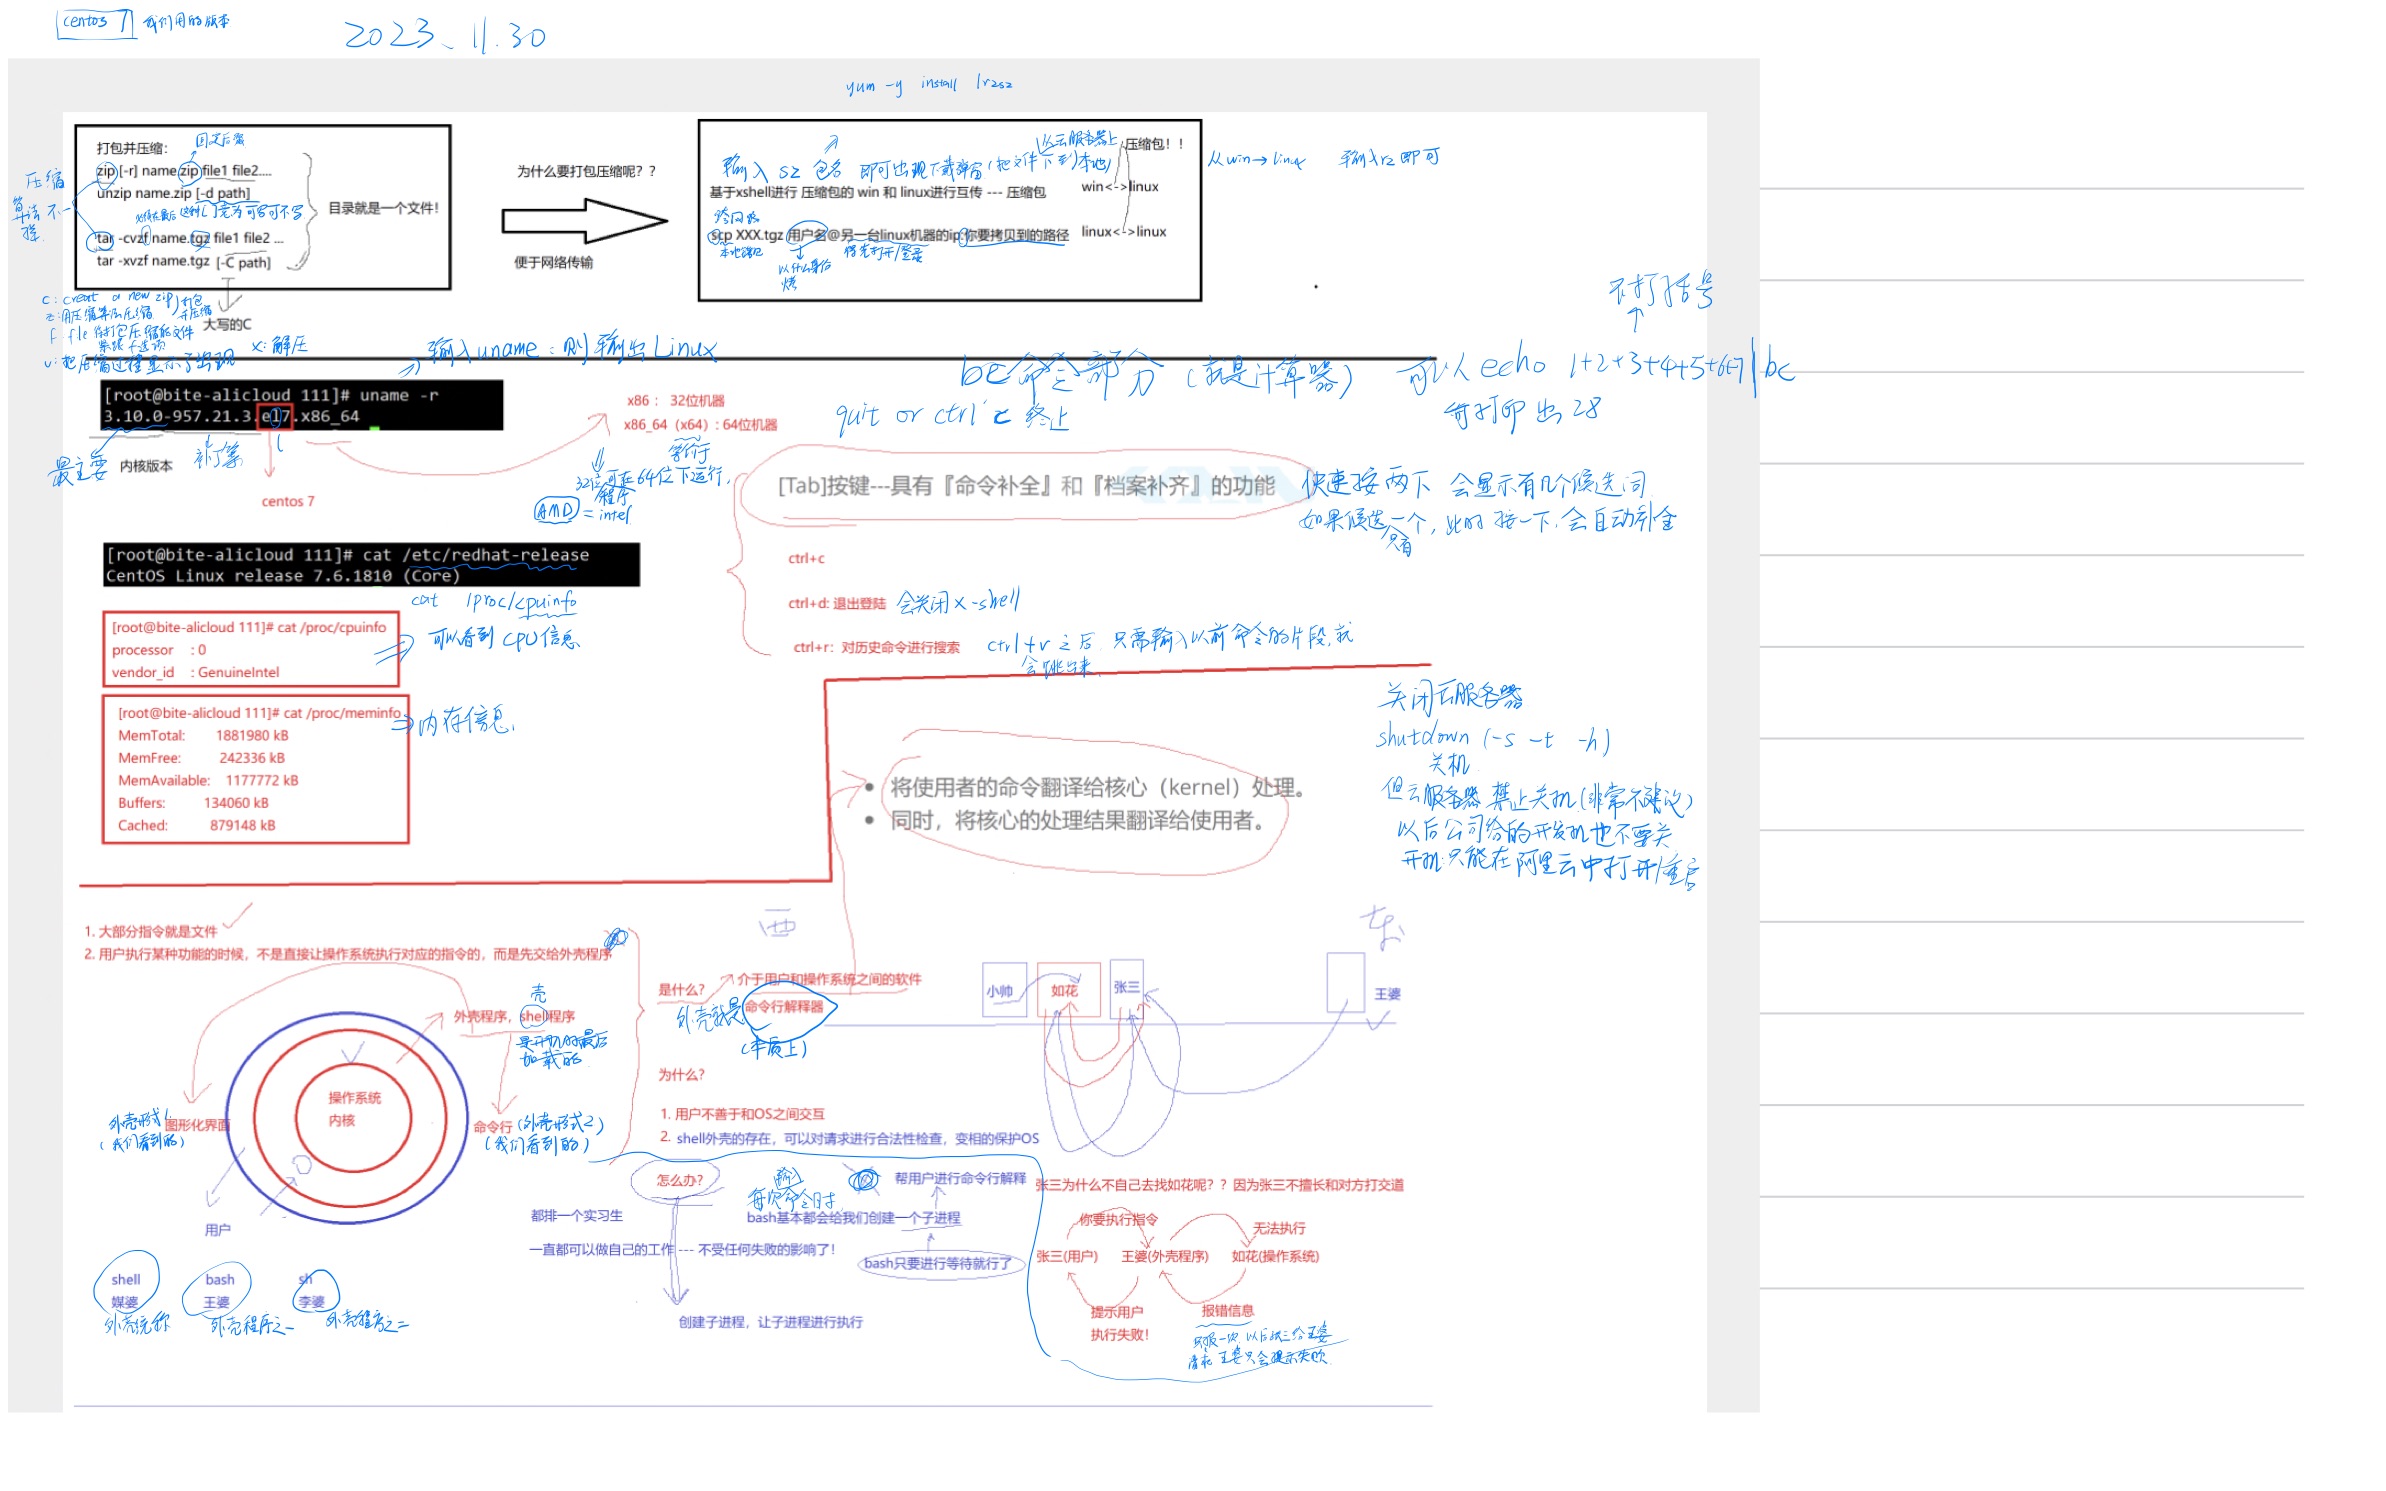 centos 7 我们用的版本
2023、11.30
yum -y install lrzsz
打包并压缩：
固定后缀
zip [-r] name.zip file1 file2....
unzip name.zip [-d path]
tar -cvzf name.tgz file1 file2 ...
tar -xvzf name.tgz [-C path]
目录就是一个文件！
压缩
算法不一
样
大写的C
c: creat a new zip
打包
并压缩
x: 解压
为什么要打包压缩呢？？
便于网络传输
以云服务器上
压缩包！！
输入 sz 包名 即可出现下载弹窗（把文件下到本地）
基于xshell进行 压缩包的 win 和 linux进行互传 --- 压缩包
win<->linux
跨网络
scp XXX.tgz 用户名@另一台linux机器的ip:你要拷贝到的路径
linux<->linux
以什么身份
从win→linux 输入rz即可
不打括号
输入uname：则输出Linux
bc命令部分（就是计算器） 可以 echo 1+2+3+4+5+6+7|bc
quit or ctrl c 终止
会打印出28
[root@bite-alicloud 111]# uname -r
3.10.0-957.21.3.el7.x86_64
最主要
内核版本
centos 7
x86： 32位机器
x86_64（x64）: 64位机器
等价于
32位程序可在64位下运行,
AMD = intel
[Tab]按键---具有『命令补全』和『档案补齐』的功能
快速按两下 会显示有几个候选词
如果候选只有一个，此时按一下，会自动补全
[root@bite-alicloud 111]# cat /etc/redhat-release
CentOS Linux release 7.6.1810 (Core)
ctrl+c
ctrl+d: 退出登陆 会关闭x-shell
ctrl+r：对历史命令进行搜索 ctrl+r之后 只需输入以前命令的片段,就
会跳出来
cat /proc/cpuinfo
可以看到CPU信息
[root@bite-alicloud 111]# cat /proc/cpuinfo
processor : 0
vendor_id : GenuineIntel
[root@bite-alicloud 111]# cat /proc/meminfo
内存信息
MemTotal: 1881980 kB
MemFree: 242336 kB
MemAvailable: 1177772 kB
Buffers: 134060 kB
Cached: 879148 kB
• 将使用者的命令翻译给核心（kernel）处理。
• 同时，将核心的处理结果翻译给使用者。
关闭云服务器
shutdown (-s -t -h)
关机
但云服务器 禁止关机(非常不建议)
以后公司给的开发机也不要关
开机只能在阿里云中打开/重启
1. 大部分指令就是文件
2. 用户执行某种功能的时候，不是直接让操作系统执行对应的指令的，而是先交给外壳程序
壳
外壳程序，shell程序
是开机时最后
加载的
操作系统
内核
外壳形式1
图形化界面
（我们看到的）
命令行（外壳形式2）
（我们看到的）
用户
shell
媒婆
外壳统称
bash
王婆
外壳程序之一
sh
李婆
外壳程序之二
西
东
是什么？
介于用户和操作系统之间的软件
外壳就是
命令行解释器
（本质上）
小帅
如花
张三
王婆
为什么？
1. 用户不善于和OS之间交互
2. shell外壳的存在，可以对请求进行合法性检查，变相的保护OS
怎么办？
每次输命令时
帮用户进行命令行解释
都排一个实习生
bash基本都会给我们创建一个子进程
一直都可以做自己的工作 --- 不受任何失败的影响了！
bash只要进行等待就行了
创建子进程，让子进程进行执行
张三为什么不自己去找如花呢？？因为张三不擅长和对方打交道
你要执行指令
无法执行
张三(用户)
王婆(外壳程序)
如花(操作系统)
提示用户
执行失败！
报错信息